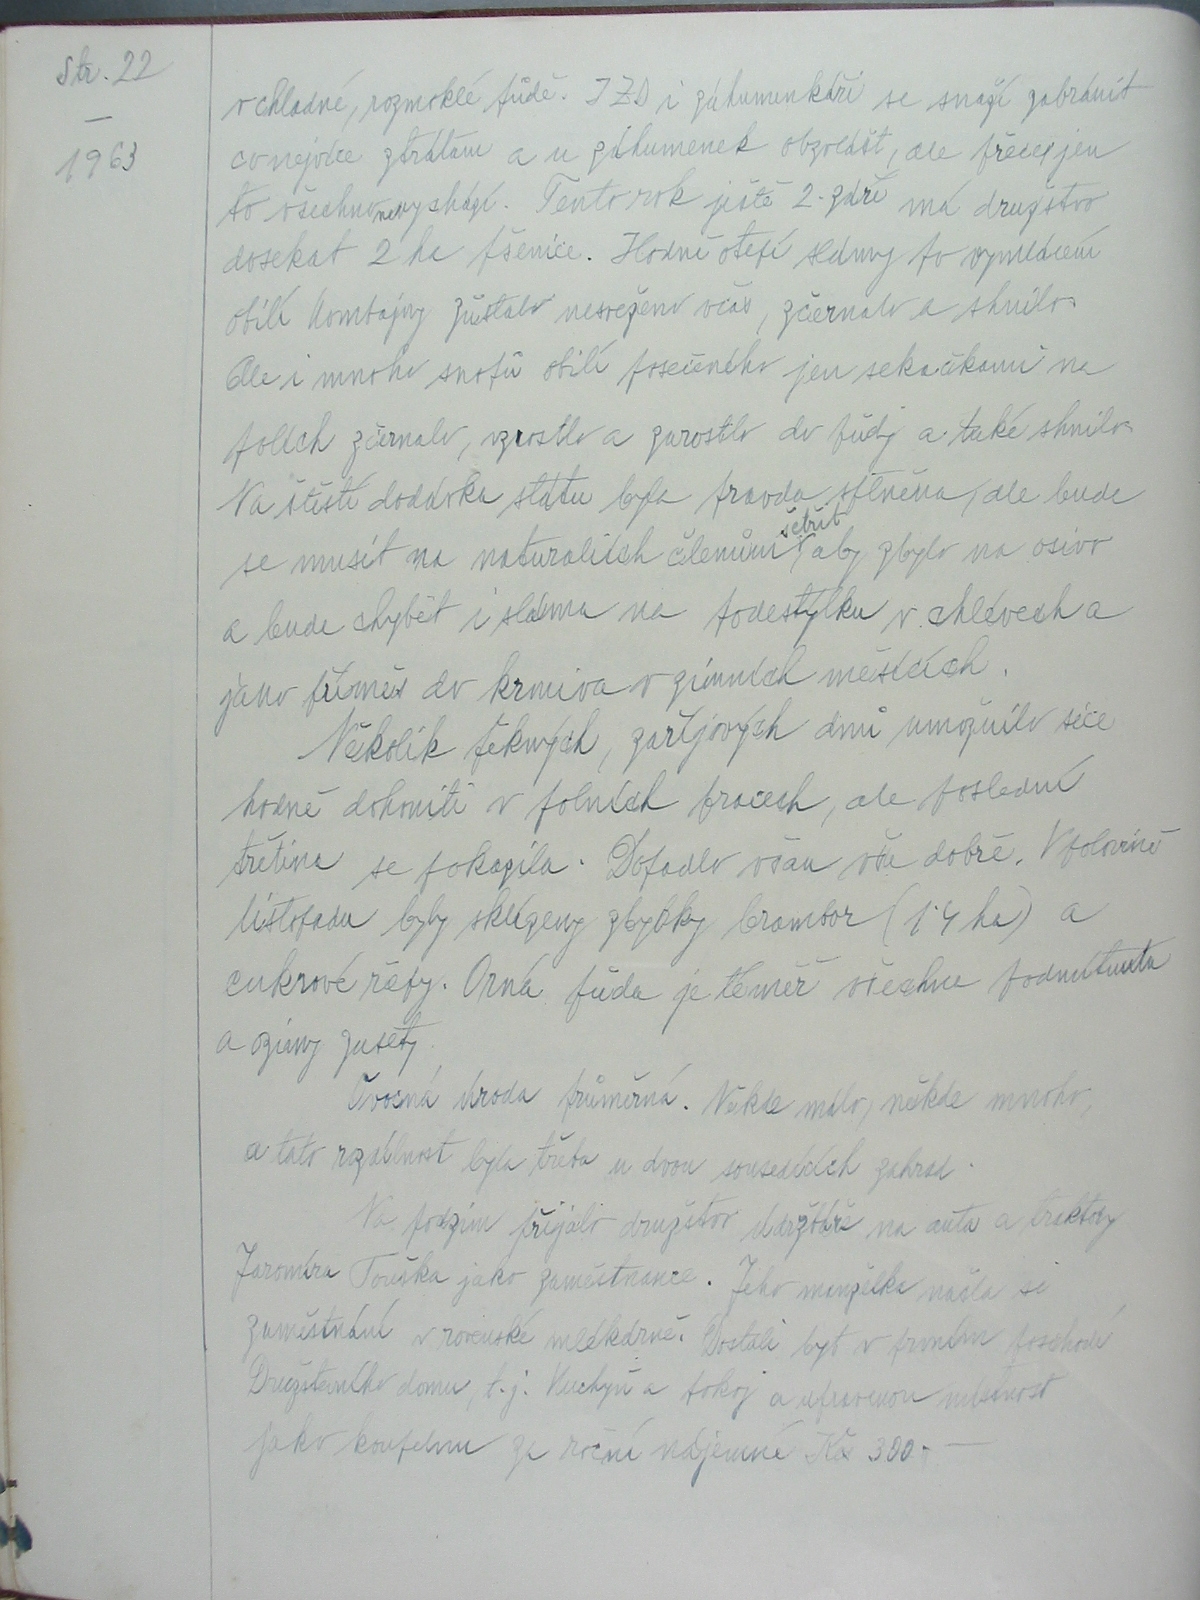 Str. 22
—
1963
v chladné, rozmoklé půdě. JZD i záhumenkáři se snaží zabránit
co nejvíce ztrátám a u záhumenek obzvlášť, ale přece jen
to všechno nevychází. Tento rok ještě 2. září má družstvo
dosekat 2 ha pšenice. Hodně otepí slámy po vymlácení
obilí kombajny zůstalo nesvezeno včas, zčernalo a shnilo.
Ale i mnoho snopů obilí posečeného jen sekačkami na
polích zčernalo, vzrostlo a zarostlo do půdy a také shnilo.
Na štěstí dodávka státu byla pravda splněna, ale bude
se muset na naturaliích členům šetřit, aby zbylo na osivo
a bude chybět i sláma na podestýlku v chlévech a
jako příměs do krmiva v zimních měsících.
Několik pěkných, zářijových dnů umožnilo sice
hodně dohoniti v polních pracech, ale poslední
třetina se pokazila. Dopadlo však vše dobře. V polovině
listopadu byly sklizeny zbytky brambor (1·4 ha) a
cukrové řepy. Orná půda je téměř všechna podmítnuta
a oziny zasety.
Ovocná úroda průměrná. Někde málo, někde mnoho,
a tato rozdílnost byla třeba u dvou sousedících zahrad.
Na podzim přijalo družstvo údržbáře na auta a traktory
Jaromíra Touška jako zaměstnance. Jeho manželka našla si
zaměstnání v rovenské mlékárně. Dostali byt v prvním poschodí
Družstevního domu, t.j. kuchyň a pokoj a upravenou místnost
jako koupelnu za roční nájemné Kčs 300.-—